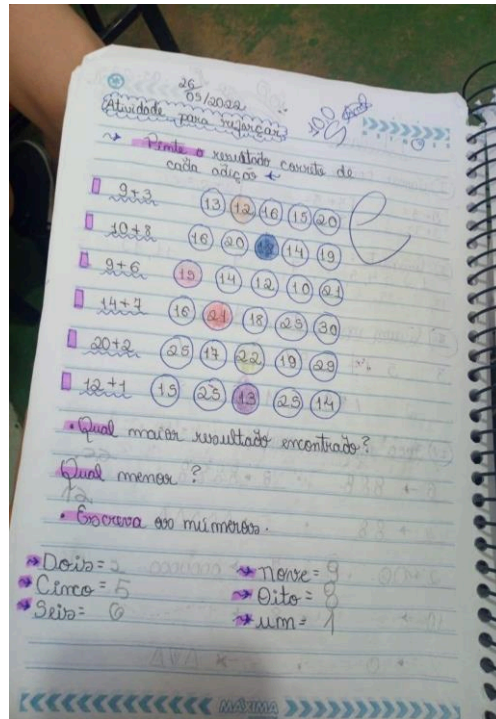 26
05/2022
Atividade para reforçar
Pinte o resultado correto de
cada adição
9+3 13 12 16 15 20
10+8 16 20 18 14 19
9+6 15 14 12 10 21
14+7 16 21 18 25 30
20+2 25 17 22 19 29
12+1 15 25 13 25 14
Qual maior resultado encontrado?
22
Qual menor?
12
Escreva os números.
Dois= 2 nove= 9
Cinco= 5 Oito= 8
Seis= 6 um= 1
MÁXIMA